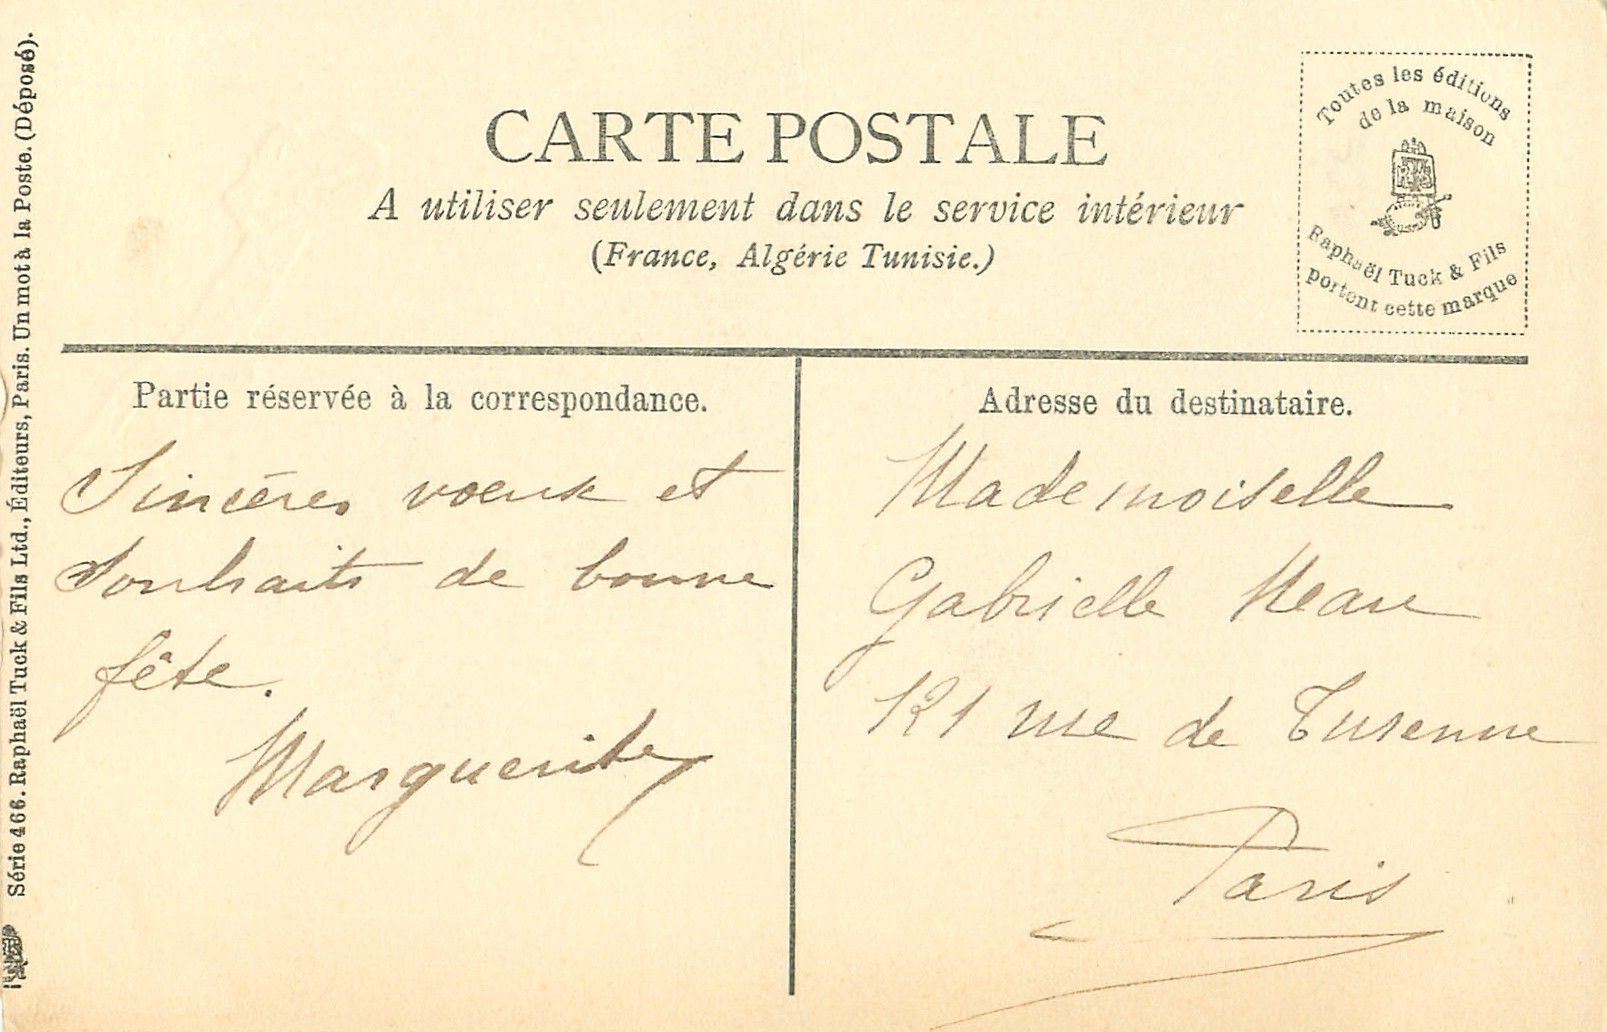 CARTE POSTALE
A utiliser seulement dans le service intérieur
(France, Algérie Tunisie.)
Toutes les éditions
de la maison
Raphaël Tuck & Fils
portent cette marque
Partie réservée à la correspondance.
Sincères voeux et
Souhaits de bonne
fête.
Marguerite
Adresse du destinataire.
Mademoiselle
Gabrielle
121 rue de Turenne
Paris
Série 466. Raphaël Tuck & Fils Ltd., Éditeurs, Paris. Un mot à la Poste. (Déposé).